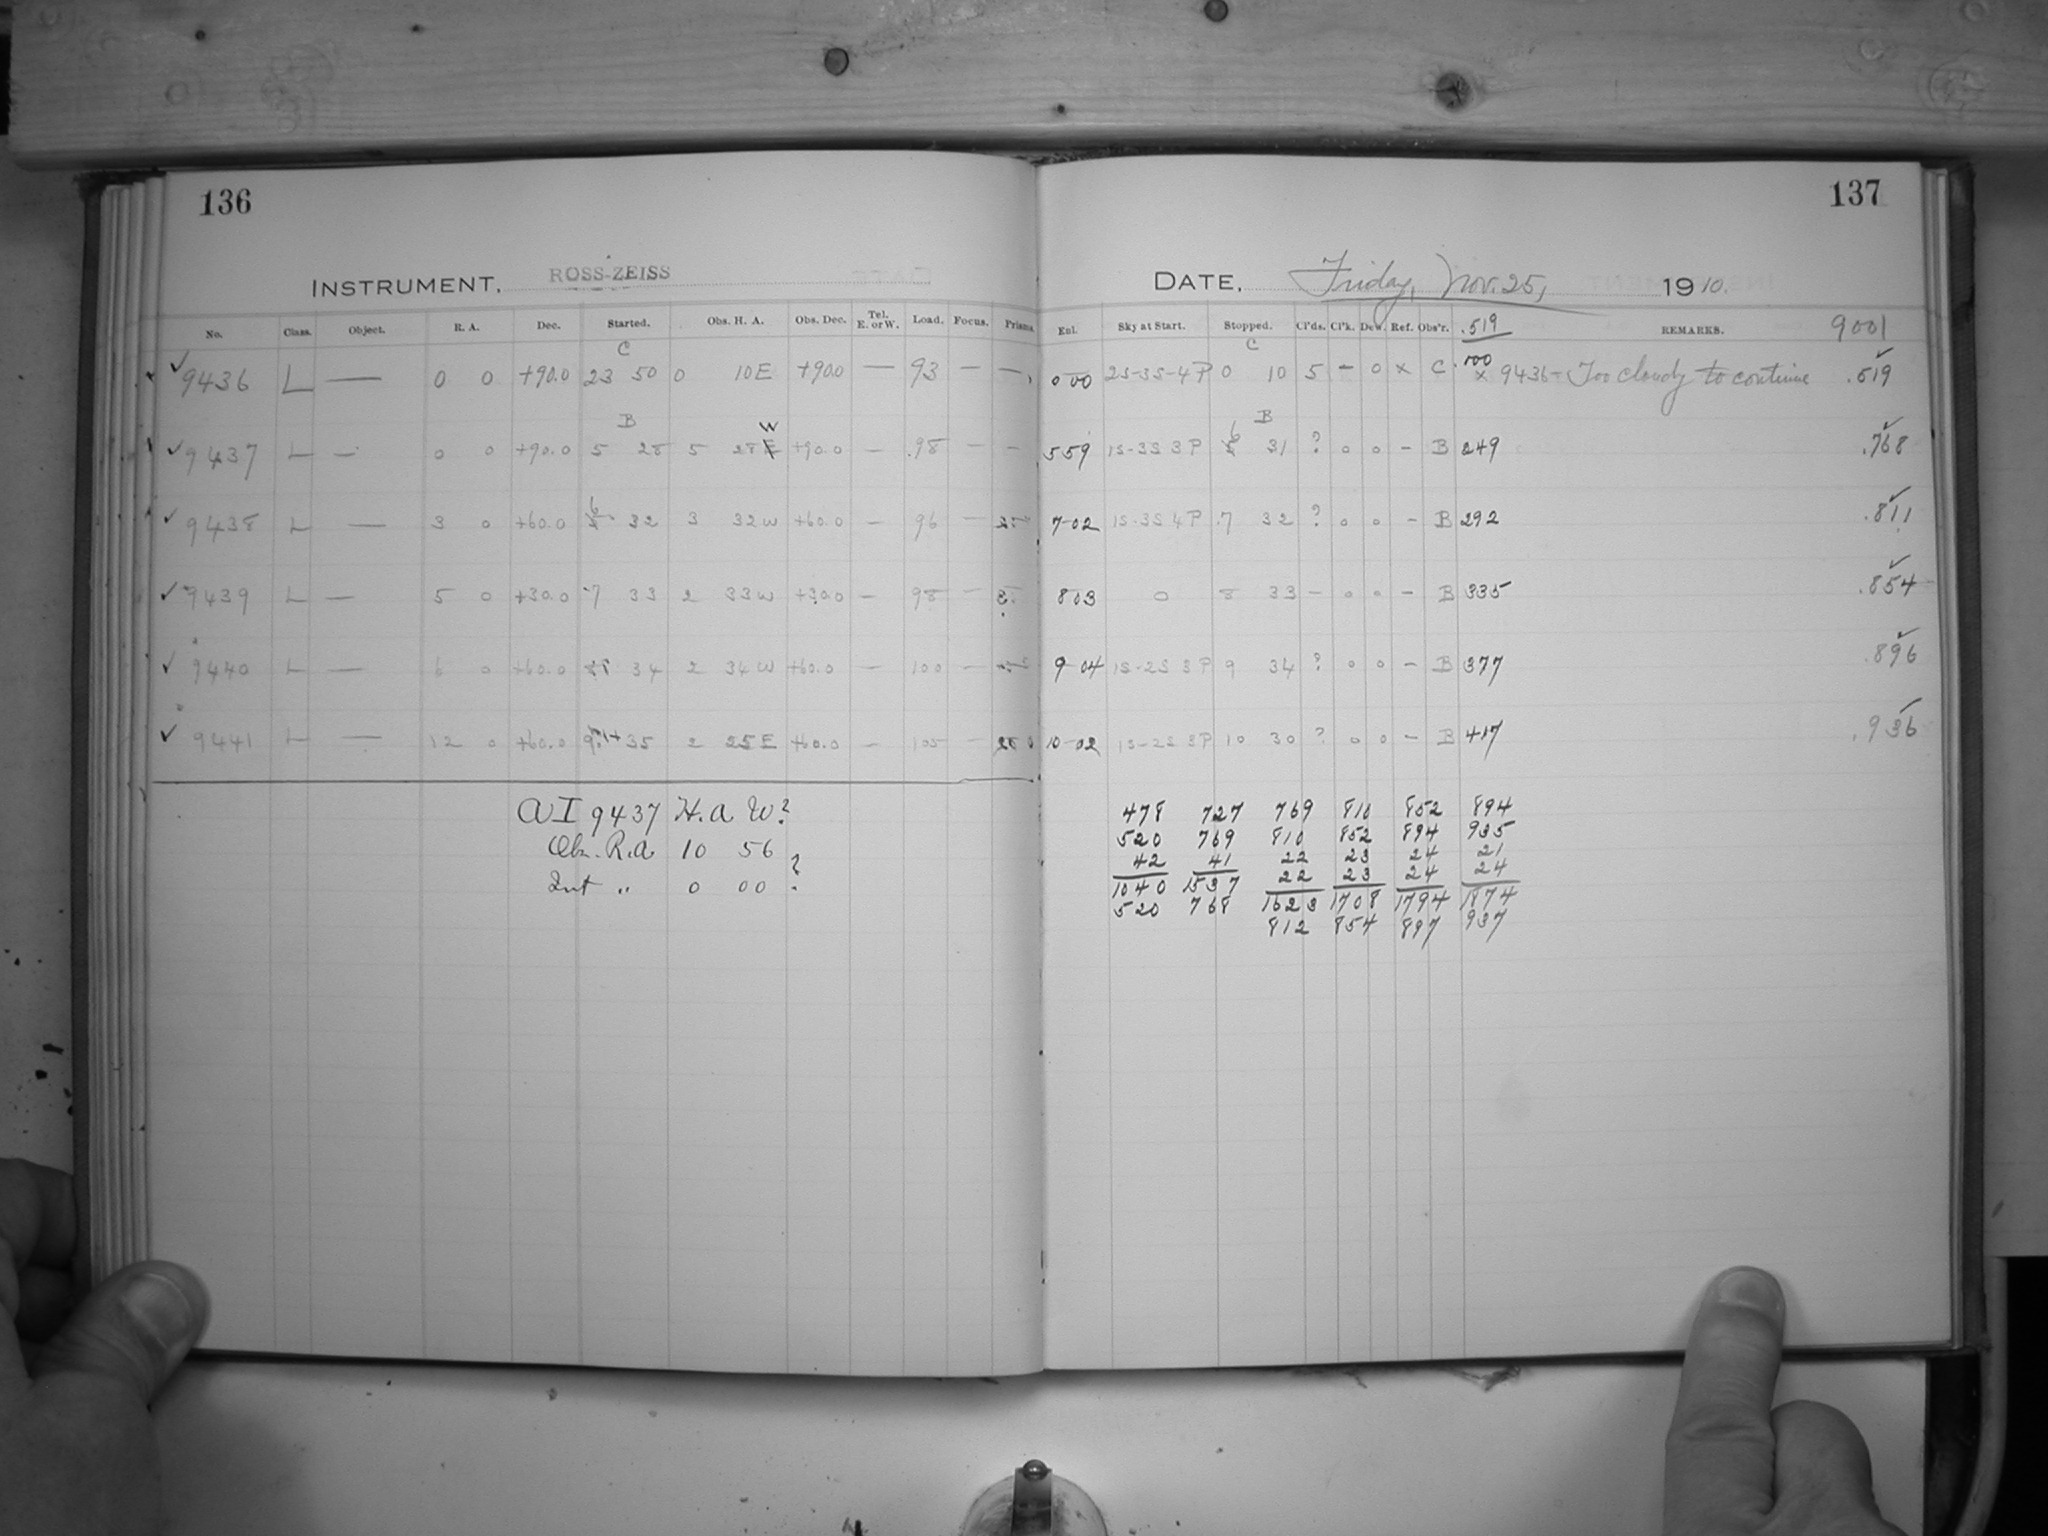 136
INSTRUMENT, ROSS-ZEISS
No. Class. Object. R. A. Dec. Started. Obs. H. A. Obs. Dec. Tel. E. or W. Load. Focus. Prisms
C
9436 L — 0 0 +90.0 23 50 0 10E +90.0 — 93 — —
B W
9437 L — 0 0 +90.0 5 28 5 28 +90.0 — 98 — —
6
9438 L — 3 0 +60.0 32 3 32W +60.0 — 96 —
9439 L — 5 0 +30.0 7 33 2 33W +30.0 — 98 —
9440 L — 6 0 +60.0 34 2 34W +60.0 — 100 —
9441 L — 12 0 +60.0 35 2 25E +60.0 — 105 —
9437 H. A W?
Obs. R.A. 10 56 ?
Int " 0 00
137
DATE, Friday, Nov. 25, 1910.
Enl. Sky at Start. Stopped. Cl'ds. Cl'k. Dew. Ref. Obs'r. .519 REMARKS. 9001
C
0 00 2S-3S-4P 0 10 5 - 0 x C .100 x 9436 - Too cloudy to continue .519
B
559 1S-3S 3P 6 31 ? 0 0 - B 249 .768
7-02 1S-3S 4P 7 32 ? 0 0 - B 292 .811
803 0 8 33 - 0 0 - B 335 .854
9-04 1S-2S 3P 9 34 ? 0 0 - B 377 .896
10-02 1S-2S 3P 10 30 ? 0 0 - B 417 .936
478 727 769 810 852 894
520 769 810 852 894 935
42 41 22 23 24 21
22 23 24 24
1040 1537 1623 1708 1794 1874
520 768 812 854 897 937